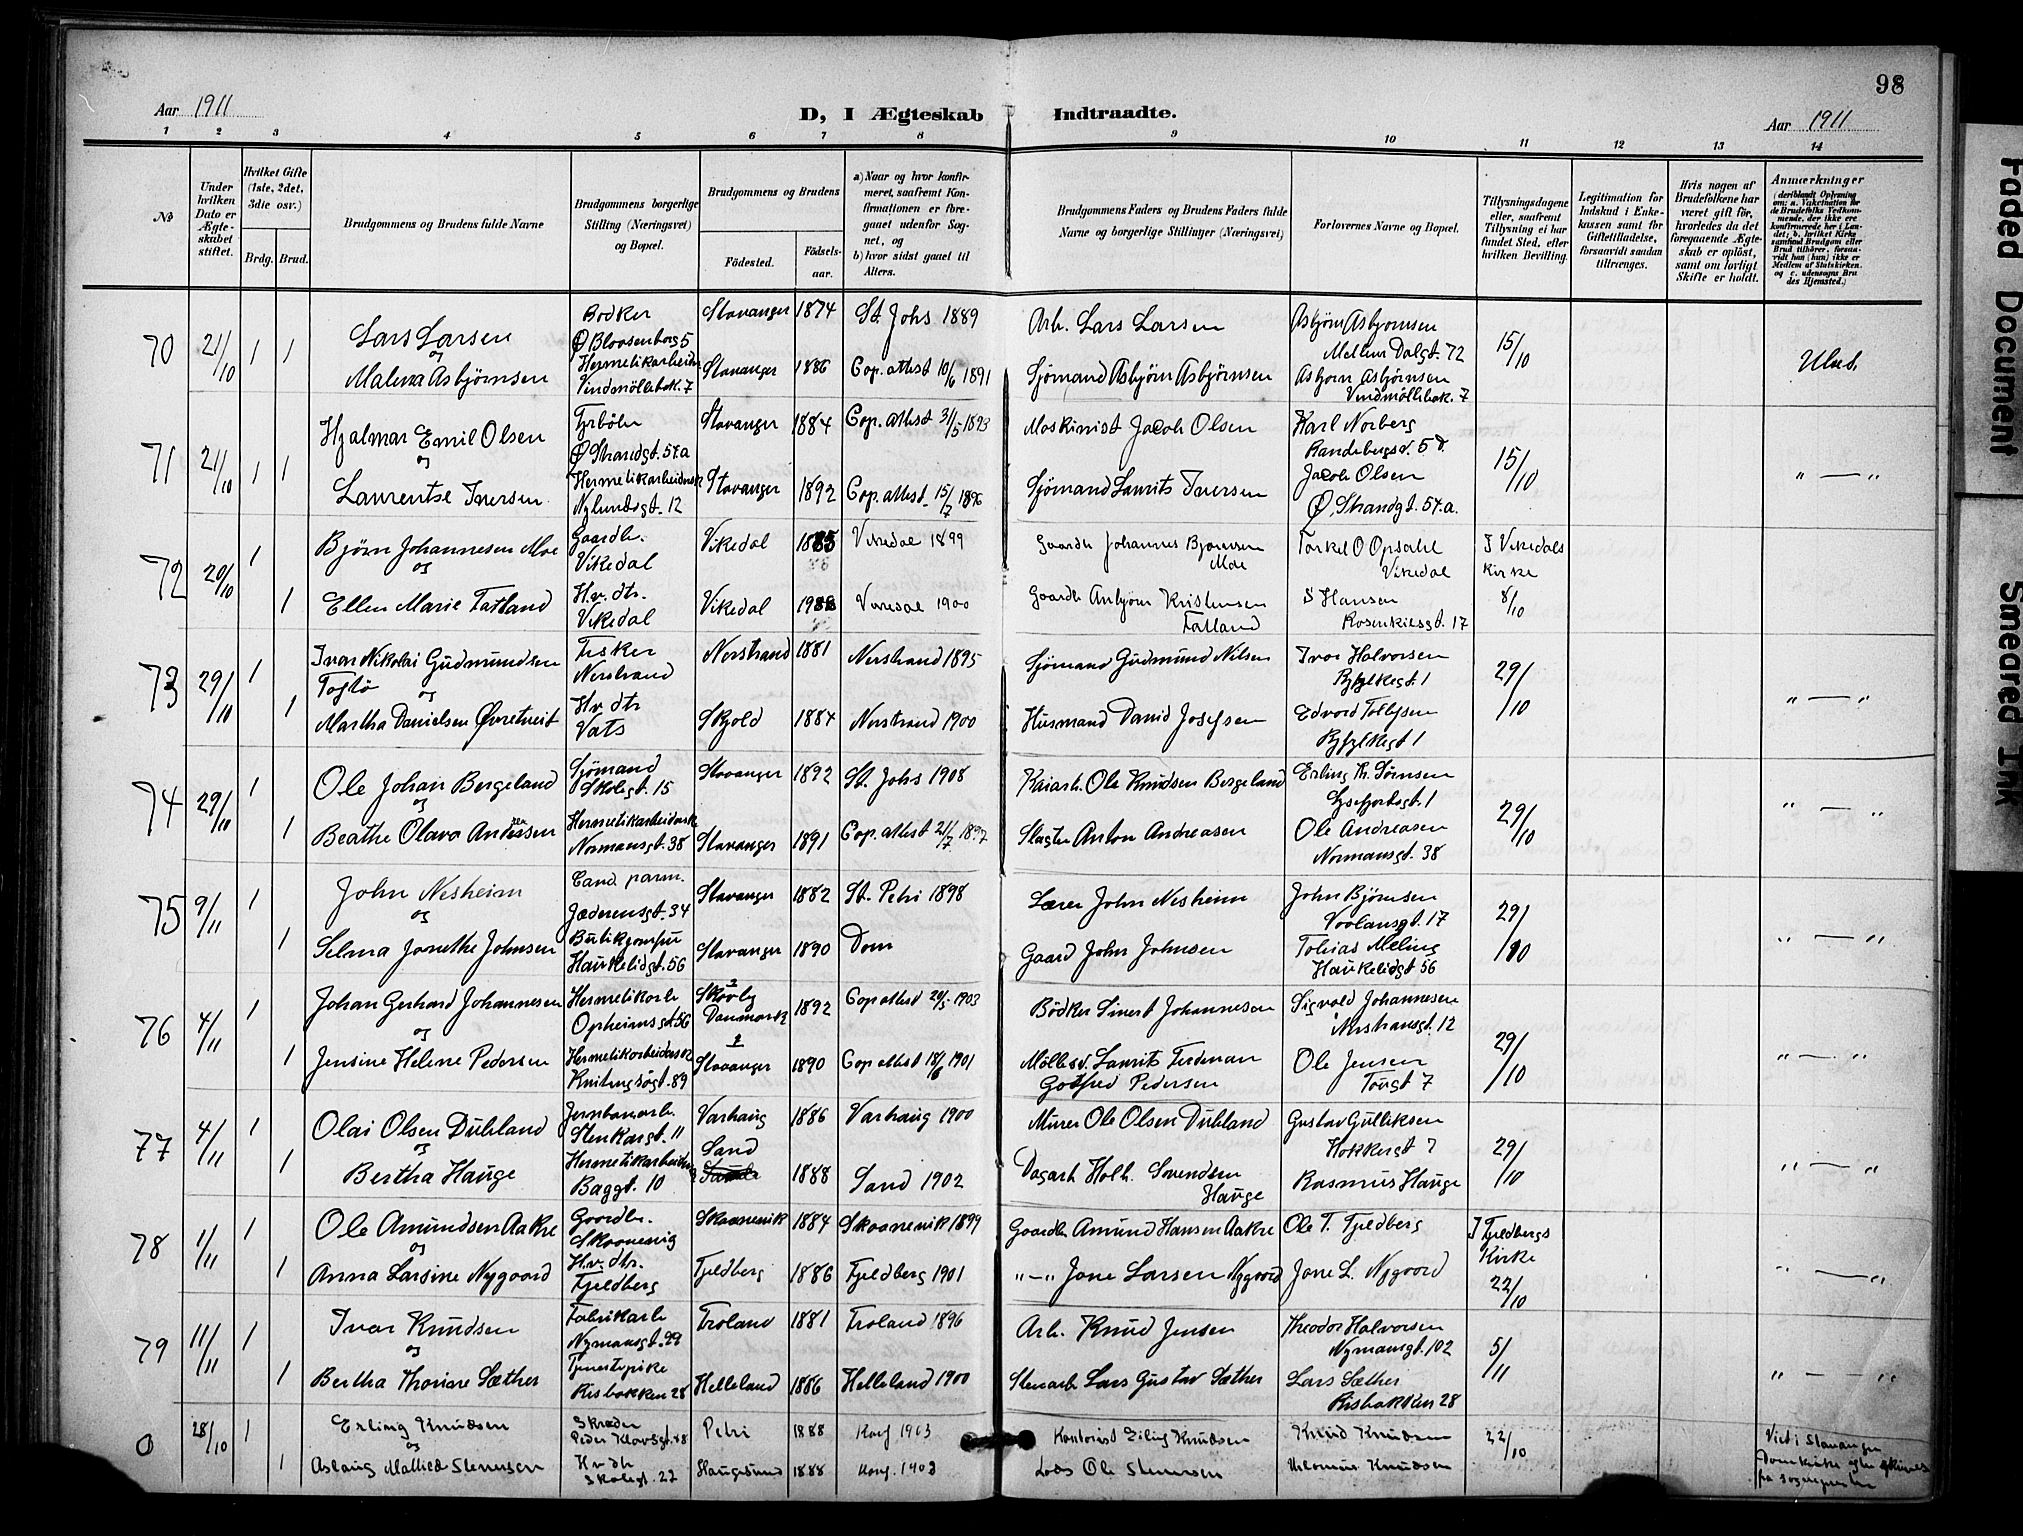 98
Aar 1911
D, I Ægteskab Indtraadte.
Aar 1911
1 2 3 4 5 6 7 8 9 10 11 12 13 14
No
Under hvilken Dato er Ægteskabet stiftet.
Hvilket Gifte (1ste, 2det, 3die osv.)
Brdg. Brud.
Brudgommens og Brudens fulde Navne
Brudgommens borgerlige Stilling (Næringsvei) og Bopæl.
Brudgommens og Brudens
Födested.
Födselsaar.
a) Naar og hvor konfirmeret, saafremt Konfirmationen er foregaaet udenfor Sognet, og
b) hvor sidst gaaet til Alters.
Brudgommens Faders og Brudens Faders fulde Navne og borgerlige Stillinger (Næringsvei)
Forlovernes Navne og Bopæl.
Tillysningsdagene eller, saafremt Tillysning ei har fundet Sted, efter hvilken Bevilling.
Legitimation for Indskud i Enkekassen samt for Giftetilladelse, forsaavidt saadan tiltrænges.
Hvis nogen af Brudefolkene har været gift för, hvorledes da det foregaaende Ægteskab er oplöst, samt om lovligt Skifte er holdt.
Anmærkninger
(deriblandt Oplysning om: a. Vakcination for de Brudefolks Vedkommende, der ikke ere konfirmerede her i Landet; b. hvilket Kirkesamfund Brudgom eller Brud tilhörer, forsaavidt han (hun) ikke er Medlem af Statskirken, og c. udensogns Brudes Hjemsted.)
70 21/10 1 1
Lars Larsen
og
Malena Asbjørnsen
Bødker
Ø Blaasenborg 5
Vindmöllebak. 7
Stavanger 1874 St. Johs 1889
Stavanger 1886 Cop. attest 10/6 1891
Arb. Lars Larsen
Sjömand Asbjörn Asbjörnsen
Asbjörn Asbjornsen
Mellem Dalgt. 72
Asbjorn Asbjørnsen
Vindmöllebak. 7
15/10
71 21/10 1 1
Hjalmar Emil Olsen
og
Laurentse Iversen
Fyrböter
Ø Strandgt. 57.a
Hermetikarbeidersk
Nylundsgt. 12
Stavanger 1884 Cop. attest 31/5 1893
Stavanger 1892 Cop. attest. 15/7 1896
Maskinist Jacob Olsen
Sjömand Laurits Iversen
Karl Norberg
Jacob Olsen
Ø. Strandgt. 57.a.
15/10
" — "
72 20/10 1 1
Björn Johannesen Moe
og
Ellen Marie Fatland
Gaardbr.
Vikedal
H.v. dtr.
Vikedal
Vikedal Vikedal 1899
Vikedal 1900
Gaardb Johannes Bjørnsen Moe
Gaardb Anbjörn Kristensen Fatland
Torkel O Opsahl
Vikedal
S Hansen
Rosenkilsgt. 17
I Vikedals Kirke
8/10
73 29/10 1 1
Ivar Nikolai Gudmundsen
og
Martha Danielsen Øvretveit
Fisker
Nerstrand
H.v. dtr
Vats
Nerstrand 1881 Nerstrand 1895
Skjold 1884 Nerstrand 1900
Sjömand Gudmund Nilsen
Husmand Daniel Josefsen
Ivar Halvorsen
Ryfylkegt. 1
Edvard Tollefsen
Ryfylkegt 1
29/10
" — "
74 29/10 1 1
Ole Johan Bergeland
og
Beathe Olava Andreasen
Sjömand
Skolegt. 15
Hermetikarbeidersk
Normansgt. 38
Stavanger 1892 St. Johs 1908
Stavanger 1891 Cop. attest 21/7 1897
Kaiarb. Ole Knudsen Bergeland
Slagter Anton Andreasen
Erling Th. Sörnsen
Lysefjordsgt. 1
Ole Andreasen
Normansgt. 38
29/10
" — "
75 9/11 1 1
John Nesheim
og
Selma Janethe Johnsen
Cand. parm.
Jæderensgt. 34
Butikjomfru
Haukelidgt. 56
Stavanger 1882 St. Petri 1898
Stavanger 1890 Dom
Lærer John Nesheim
Gaard John Johnsen
John Björnsen
Tobias Meling
Haukelidgt 56
29/10
" — "
76 4/11 1 1
Johan Gerhard Johannesen
og
Jensine Helene Pedersen
Hermetikarb
Opheimsgt 56
Hermetikarbeidersk
Danmark 1892 Cop attest 20/5 1903
Stavanger 1890 Cop attest 18/6 1901
Bödker Sivert Johannesen
Laurits Ferdinan
Gotfred Pedersen
Sigvald Johannesen
Ole Jensen
Tougt 7
29/10
" — "
77 4/11 1 1
Olai Olsen Dubland
og
Bertha Hauge
Jernbanearb.
Stenkargt. 11
Baggt. 10
Varhaug 1886 Varhaug 1900
Sand 1888 Sand 1902
Murer Ole Olsen Dubland
Dagarb Holb. Svendsen Hauge
Gustav Gulliksen
Hokkergt 7
Rasmus Hauge
29/10
" — "
78 1/11 1 1
Ole Amundsen Aakre
og
Anna Larsine Nygaard
Gaardbr.
Skaanevig
H.v. dtr.
Fjeldberg
Skaanevik 1884 Skaanevik 1899
Fjeldberg 1886 Fjeldberg 1901
Gaardbr Amund Hansen Aakre
" — " Jone Larsen Nygaard
Ole T. Fjeldberg
Jone L. Nygaard
I Fjeldbergs Kirke
22/10
" — "
79 11/11 1 1
Ivar Knudsen
og
Bertha Thorine Sæther
Fabrikarb
Nymansgt. 99
Tjenestepike
Risbakken 28
Froland 1881 Froland 1896
Helleland 1886 Helleland 1900
Arb. Knud Jensen
Stenarb Lars Gustav Sæther
Theodor Halvorsen
Nymansgt. 102
Lars Sæther
Risbakken 28
5/11
" — "
0 28/10 1 1
Erling Knudsen
og
Aslaug Mathild Stenersen
Skræder
Peder Klowsgt. 48
H v dtr
Skolegt. 27
Petri 1888 Konf 1903
Haugesund 1888 konf. 1903
Kontorist Erling Knudsen
Lods Ole Stenersen
Knud Knudsen
22/10
Viet i Stavanger
Faded Document
Smeared Ink